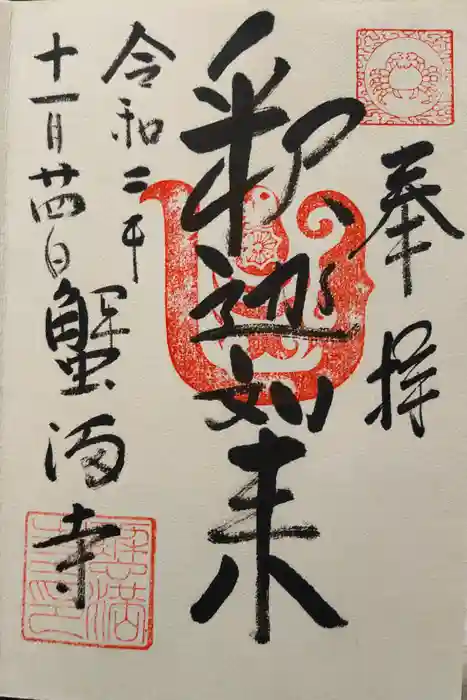 奉拝
釈迦如来
令和二年
十一月廿四日
蟹満寺